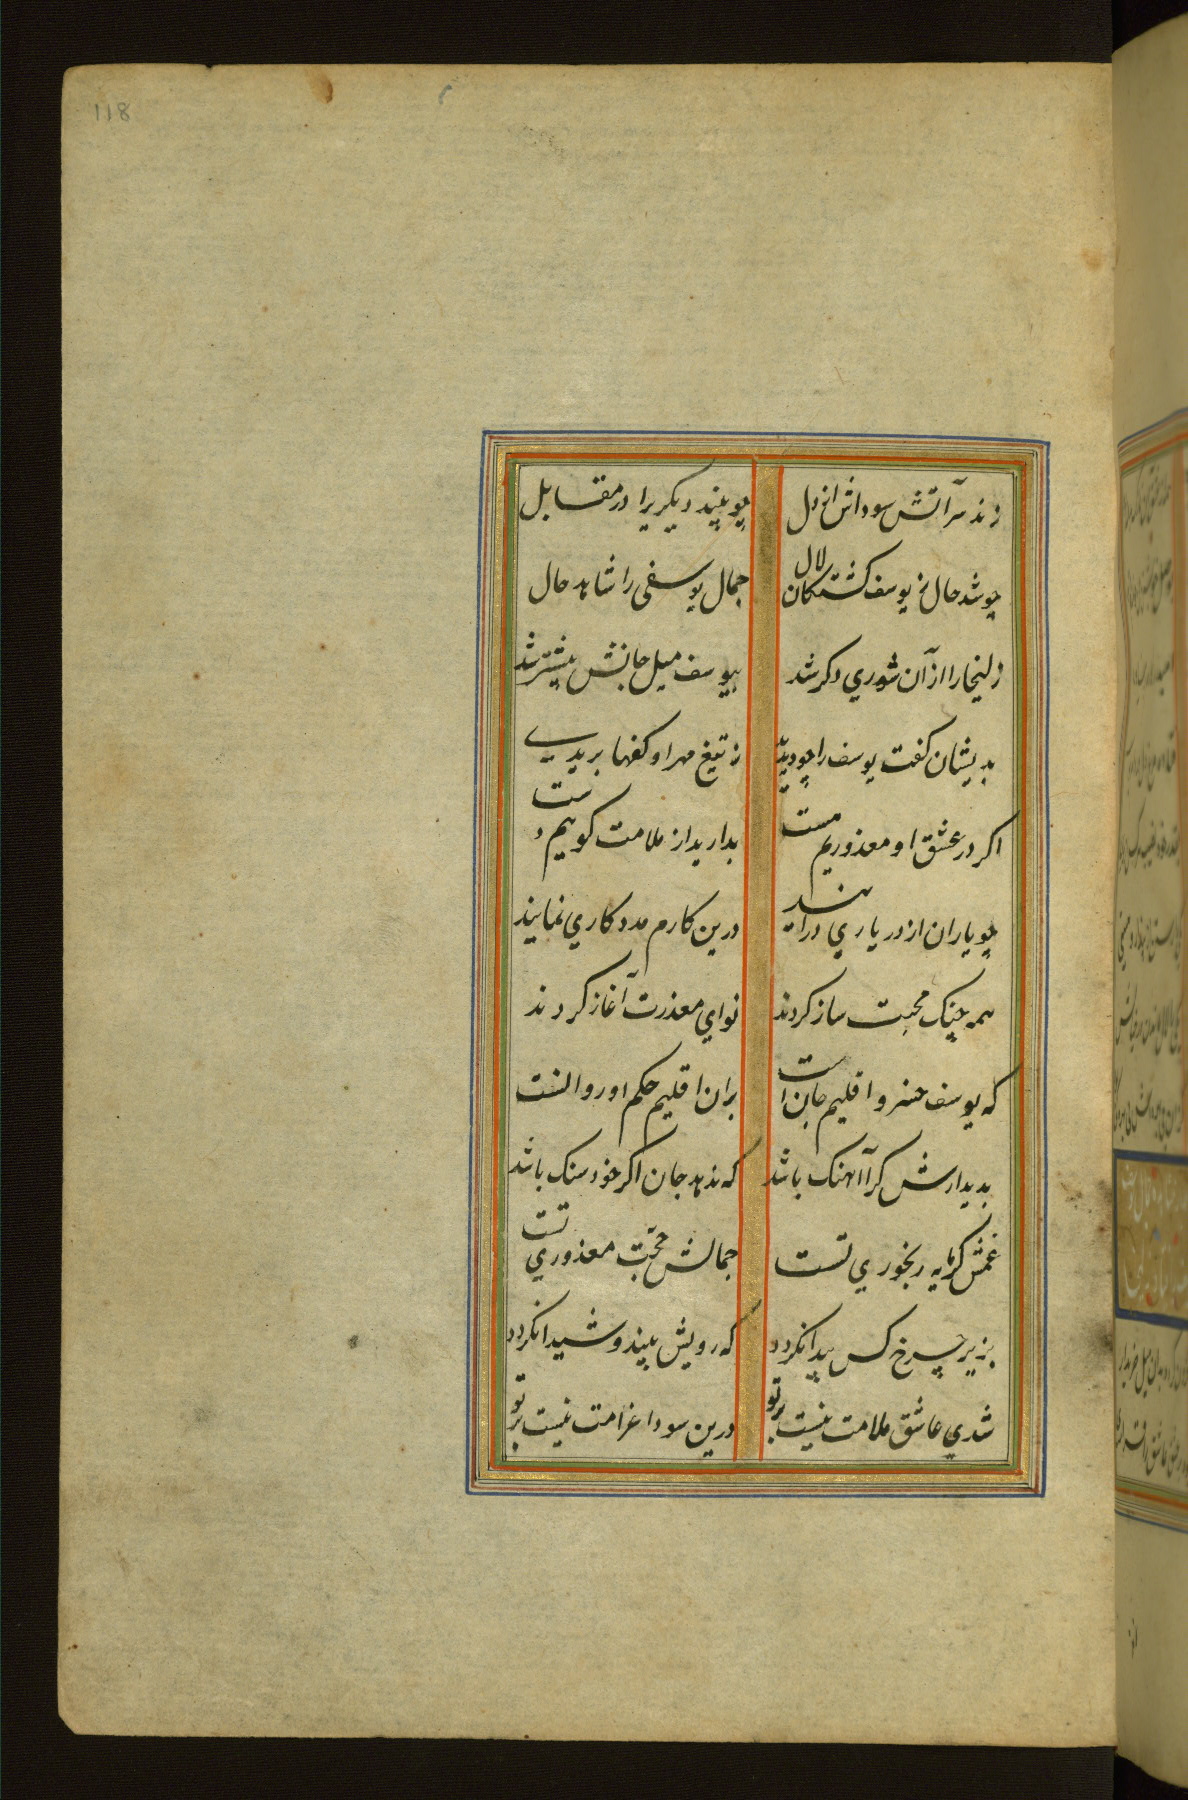 118
زند سر آتش سوداش از دل چو بیند دیکریرا در مقابل
چو شد حال یوسف کشتکان لال جمال یوسفی را شاهد حال
زلیخا را از آن شوری دکر شد بیوسف میل جانش بیشتر شد
بدیشان کفت یوسف را چو دیدید ز تیغ مهر او کفها بریدید
اکر در عشق او معذوریم هست بدارید از ملامت کوییم دست
چو یاران از در یاری درآیند درین کارم مددکاری نمایند
همه چنک محبت ساز کردند نوای معذرت آغاز کردند
که یوسف خسرو اقلیم جان است بران اقلیم حکم او روانست
بدیدارش کرا آهنک باشد که ندهد جان اکر خود سنک باشد
غمش کر مایه رنجوری تست جمالش حجت معذوری تست
بزیر چرخ کس پیدا نکردد که رویش بیند و شیدا نکردد
شدی عاشق ملامت نیست بر تو درین سودا غرامت نیست بر تو